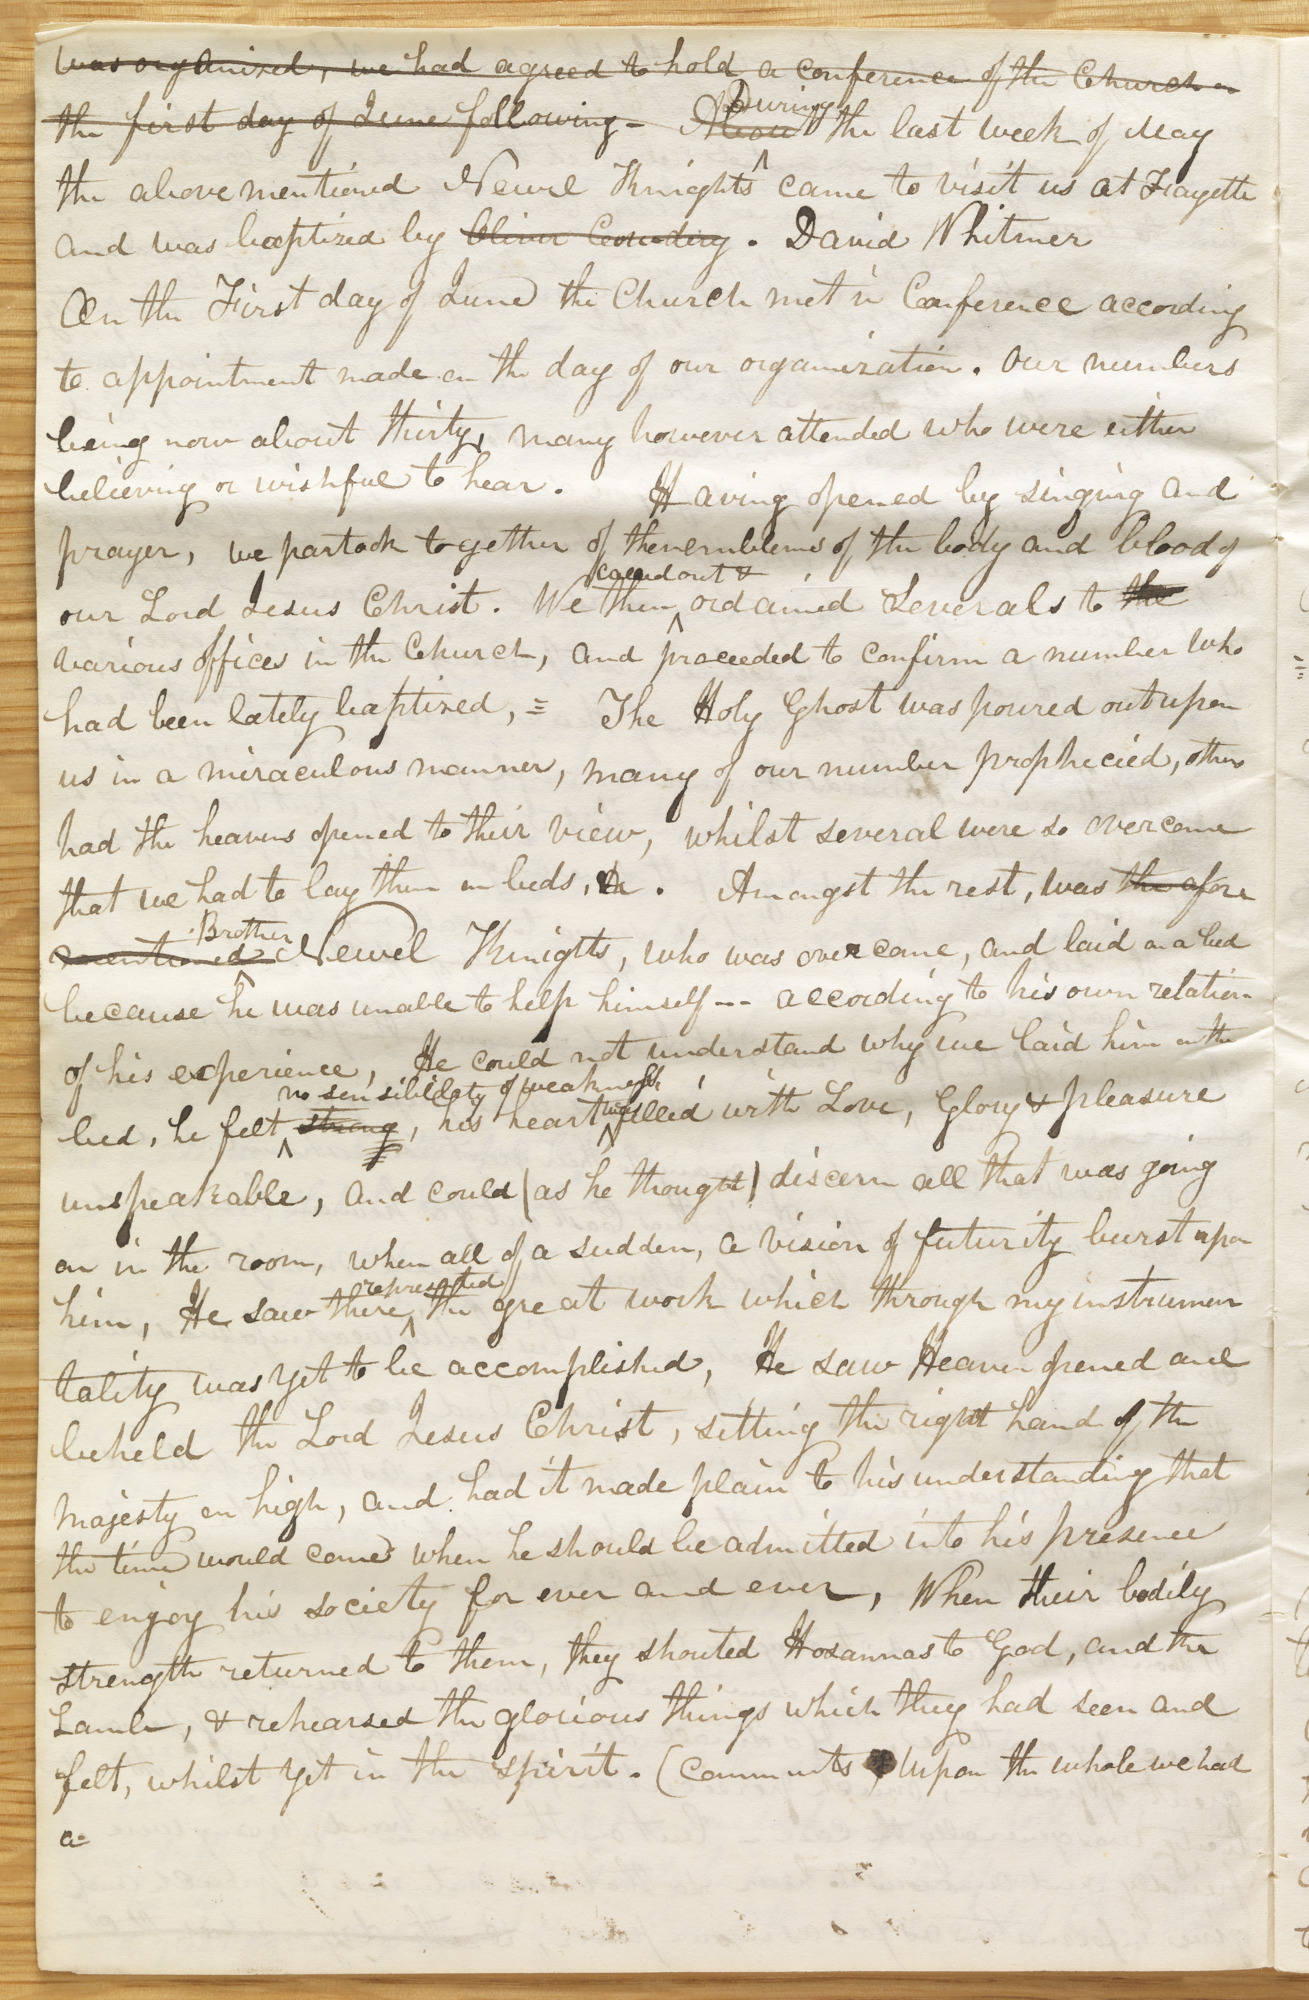 was organized, we had agreed to hold a conference of the Church on
the first day of June following— About During the last week of May
the above mentioned Newel Knights came to visit us at Fayette
and was baptized by Oliver Cowdery. David Whitmer
On the First day of June the Church met in Conference according
to appointment made on the day of our organization. Our numbers
being now about thirty, many however attended who were either
believing or wishful to hear. Having opened by singing and
prayer, we partook together of the emblems of the body and blood of
our Lord Jesus Christ. We then called out & ordained Severals to the
various offices in the Church, and proceeded to confirm a number who
had been lately baptized, = The Holy Ghost was poured out upon
us in a miraculous manner, many of our number prophecied, others
had the heavens opened to their view, whilst several were so overcome
that we had to lay them on beds, &c. Amongst the rest, was the afore
mentioned Brother Newel Knights, who was overcome, and laid on a bed
because he was unable to help himself-- according to his own relation
of his experience, He could not understand why we laid him on the
bed, he felt no sensibility of weakness strong, his heart was filled with Love, Glory & pleasure
unspeakable, and could (as he thought) discern all that was going
on in the room, when all of a sudden, a vision of futurity burst upon
him, He saw there represented the great work which through my instrumen
tality was yet to be accomplished, He saw Heaven opened and
beheld the Lord Jesus Christ, setting the right hand of the
majesty on high, and had it made plain to his understanding that
the time would come when he should be admitted into his presence
to enjoy his society for ever and ever, When their bodily
strength returned to them, they shouted Hosannas to God, and the
Lamb, & rehearsed the glorious things which they had seen and
felt, whilst yet in the spirit. (Comments Upon the whole we had
a